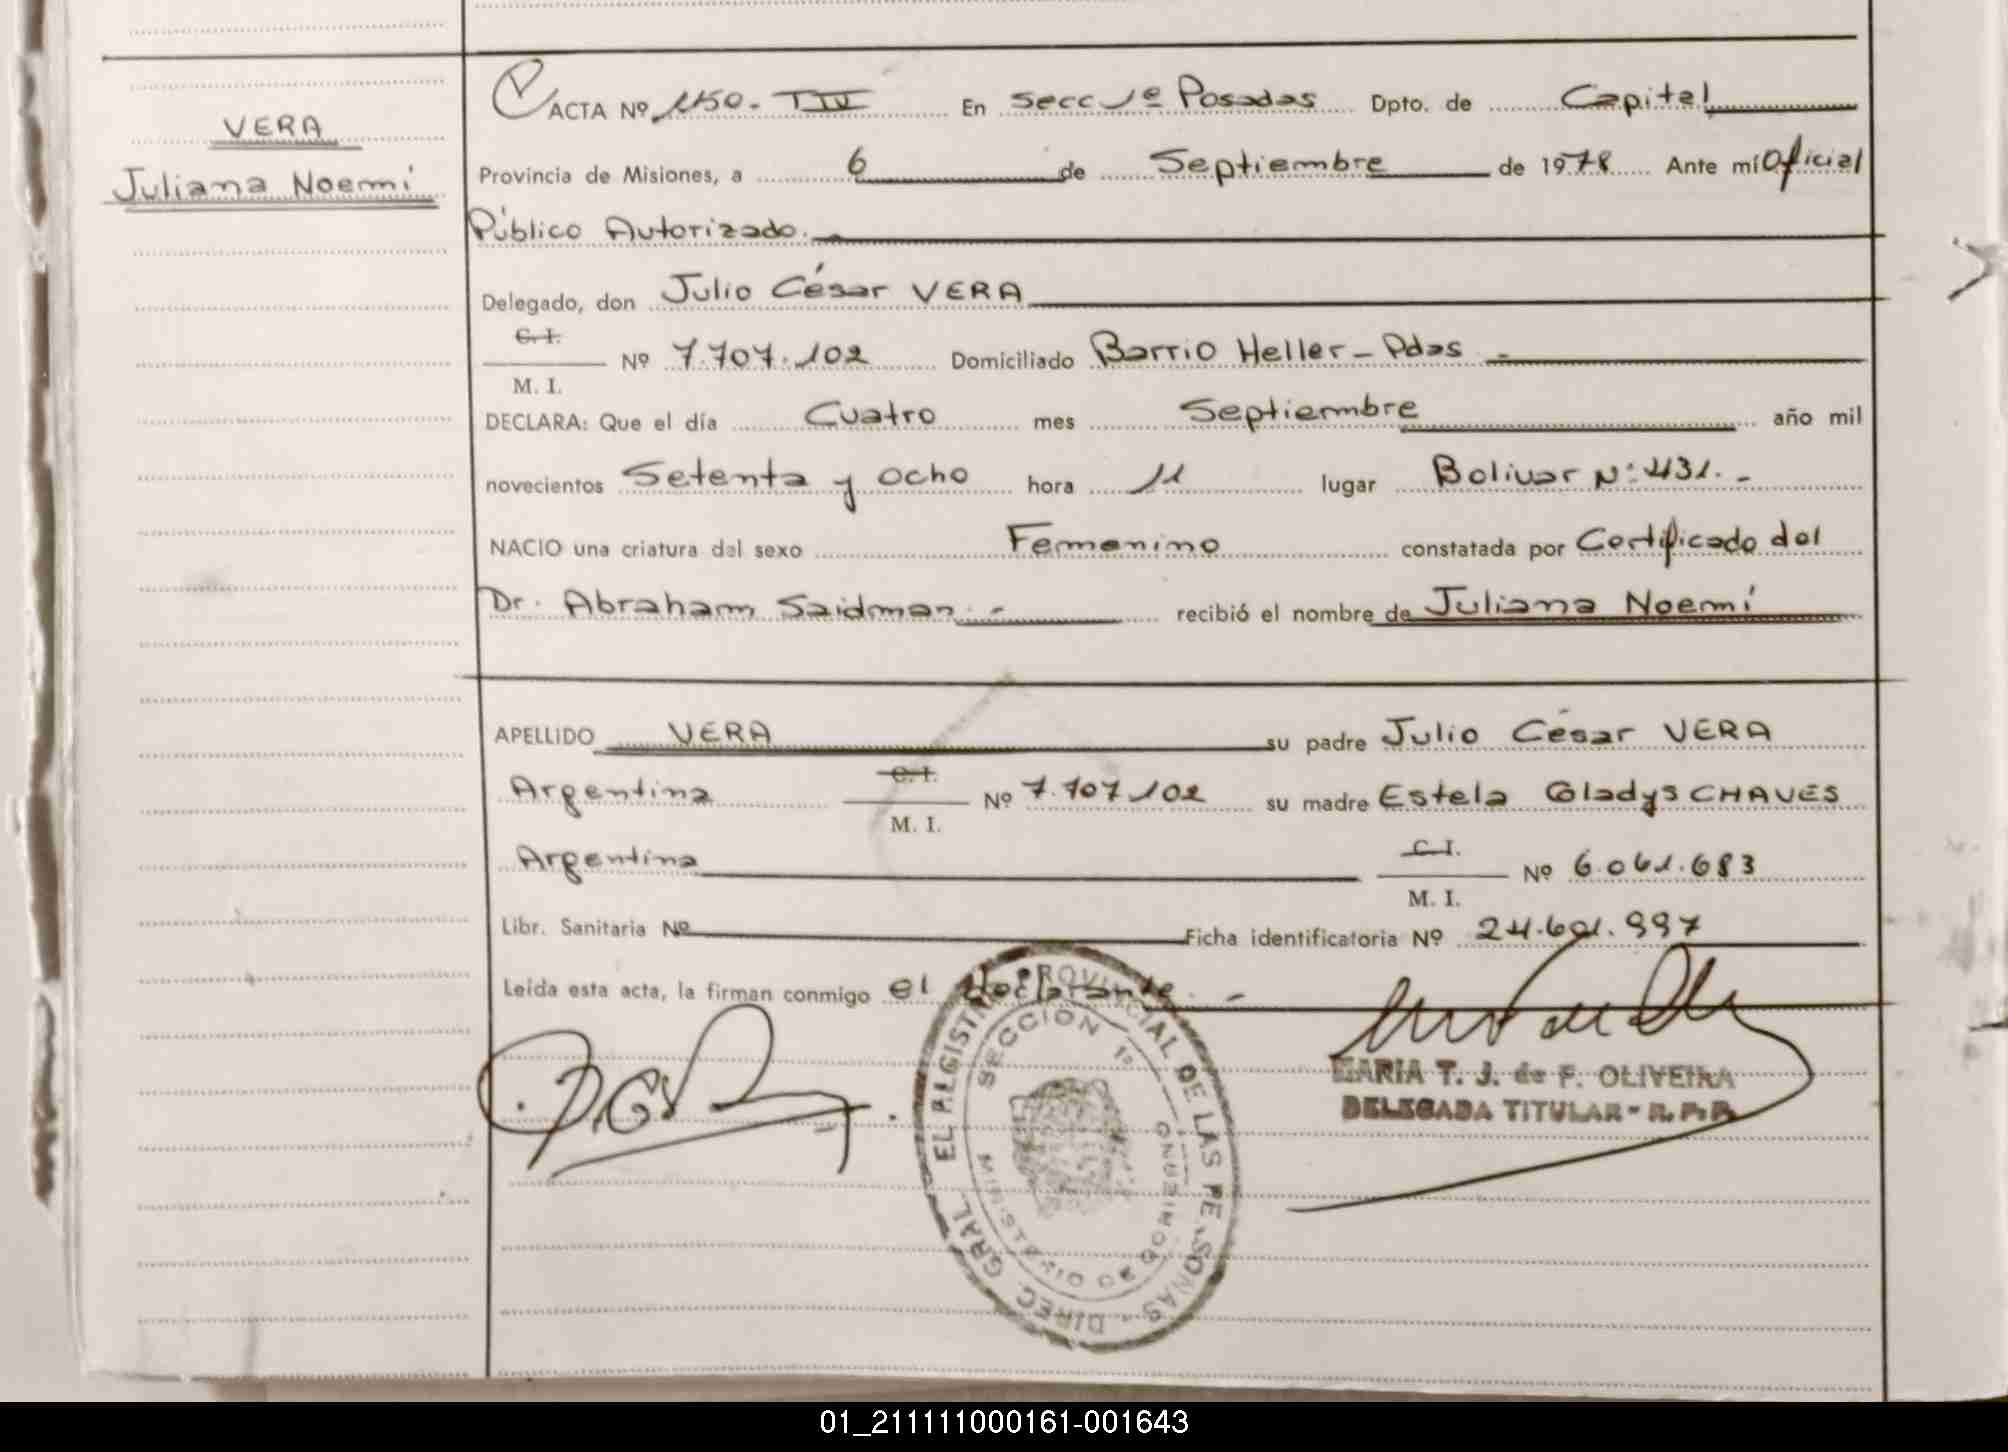 VERA
Juliana Noemí
ACTA Nº 1150. TIV En Secc 1º Posadas Dpto. de Capital
Provincia de Misiones, a 6 de Septiembre de 1978 Ante mí Oficial
Público Autorizado.
Delegado, don Julio César VERA
C. I.
Nº 7.707.102 Domiciliado Barrio Heller - Pdas -
M. I.
DECLARA: Que el día Cuatro mes Septiembre año mil
novecientos Setenta y ocho hora 11 lugar Bolivar Nº 431. -
NACIO una criatura del sexo Femenino constatada por Certificado del
Dr. Abraham Saidman. - recibió el nombre de Juliana Noemí
APELLIDO VERA su padre Julio César VERA
Argentina C. I. Nº 7.707.102 su madre Estela Gladys CHAVES
M. I.
Argentina C. I. Nº 6.061.683
M. I.
Libr. Sanitaria Nº Ficha identificatoria Nº 24.601.997
Leída esta acta, la firman conmigo el Declarante. -
MARIA T. J. de F. OLIVEIRA
DELEGADA TITULAR - R. P. P.
DIREC. GRAL. EL REGISTRO PROVINCIAL DE LAS PERSONAS
SECCION 1º
MINISTERIO DE GOBIERNO
01_211111000161-001643